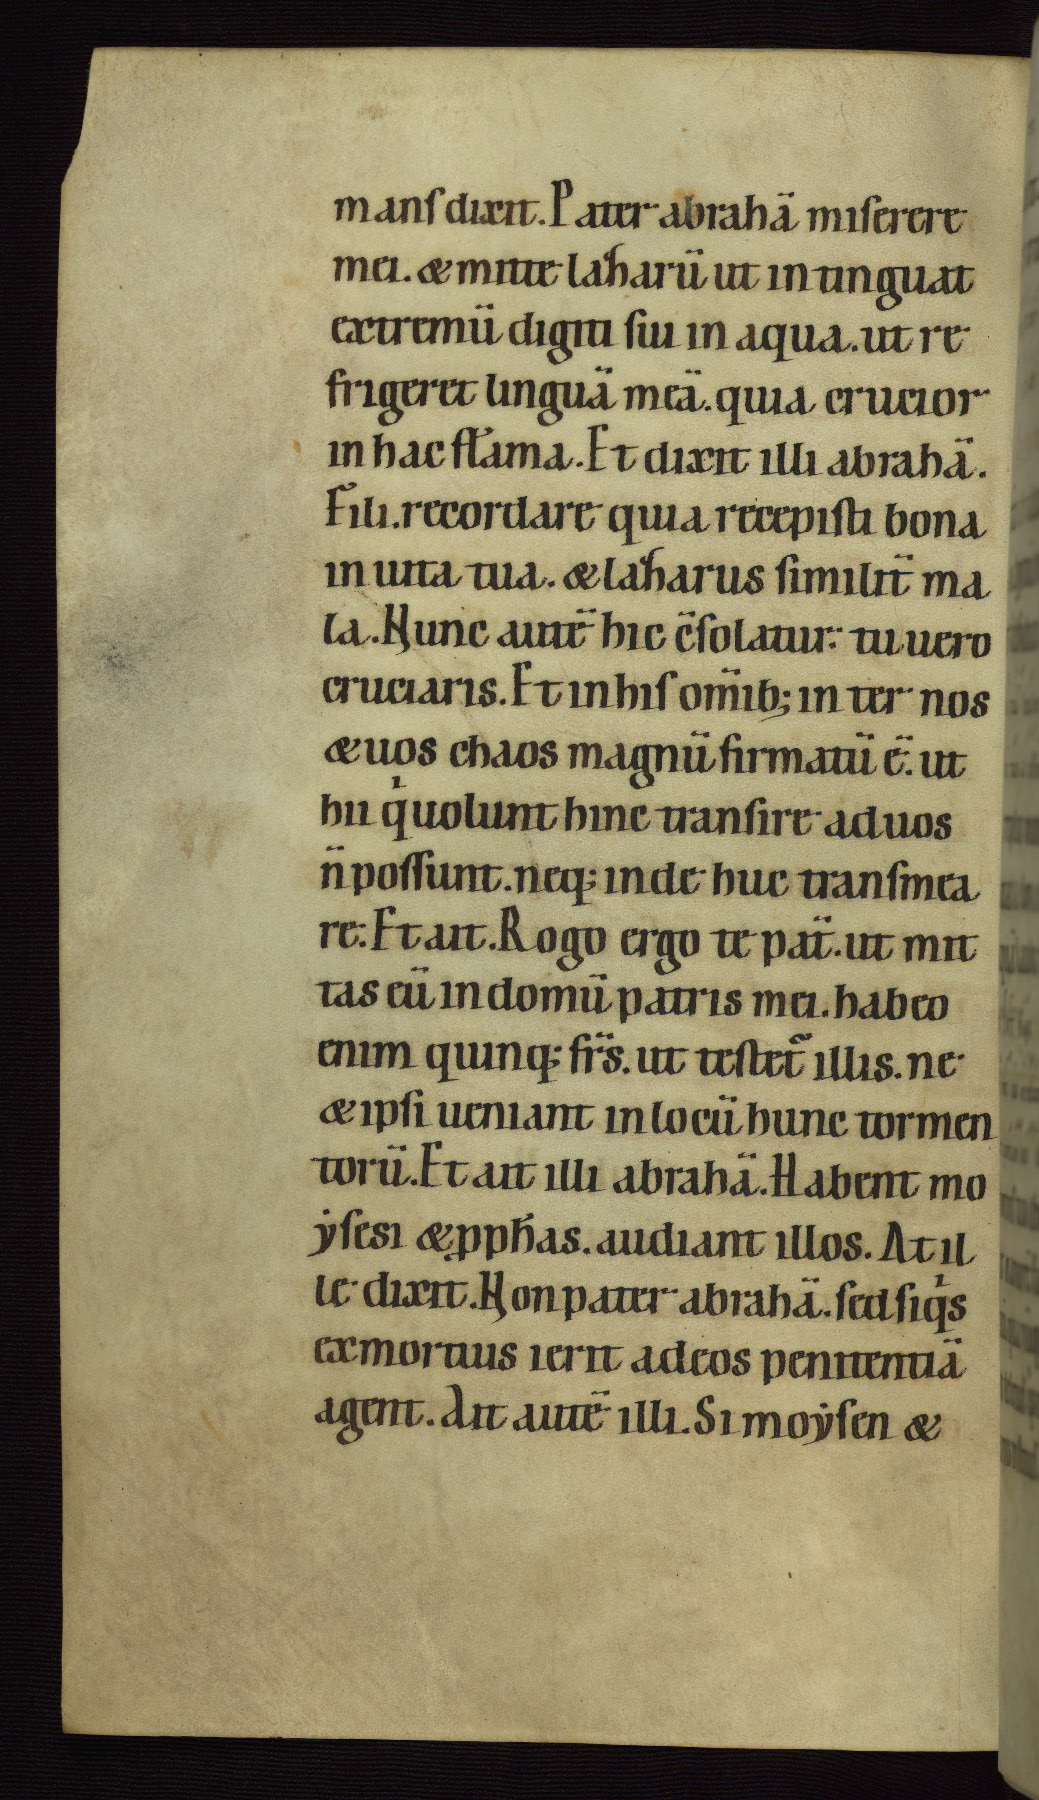 manſ dixit. Pater abrahā miſerere
mei. & mitte laƶarū ut intinguat
extremū digiti ſui in aqua. ut re
frigeret linguā meā. quia crucior
in hac flāma. Et dixit illi abrahā.
Fili. recordare quia recepiſti bona
in uita tua. & laƶarus ſimilit̄ ma
la. Nunc autē hic c̄ſolatur: tu uero
cruciaris. Et in hiſ om̄ib; inter nos
& uos chaos magnū firmatū ē. ut
hii qͥ uolunt hinc tranſire ad uos
n̄ poſſunt. neq; inde huc tranſmea
re: Et ait. Rogo ergo te pat̄. ut mit
tas eū in domū patris mei. habeo
enim quinq; fr̄s. ut teſtet᷑ illis. ne
& ipſi ueniant in locū hunc tormen
torū. Et ait illi abrahā. Habent mo
ẏſesi & ꝓph̄as. audiant illos. At il
le dixit. Non pater abrahā. ſed ſi qͥs
ex mortuus ierit ad eos penitentiā
agent. Ait autē illi. Si moẏſen &